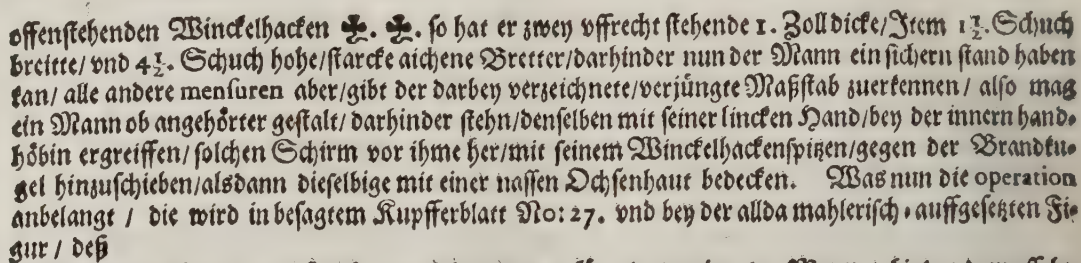 offenstehenden Winckelhacken ☘. ☘. so hat er zwen vffrecht stehende 1. Zoll dicke/ Item 1½. Schuch
breitte/ vnd 4½. Schuch hohe/ starcke aichene Bretter/ darhinder nun der Mann ein sichern stand haben
kan/ alle andere mensuren aber/ gibt der darbey verzeichnete/ verjüngte Maßstab zuerkennen/ also mag
ein Mann ob angehörter gestalt/ darhinder stehn/ denselben mit seiner lincken Hand/ bey der innern hand-
höbin ergreiffen/ solchen Schirm vor ihme her/ mit seinem Winckelhackenspitzen/ gegen der Brandku-
gel hinzuschieben/ alsdann dieselbige mit einer nassen Ochsenhaut bedecken. Was nun die operation
anbelangt / die wird in besagtem Kupfferblatt No: 27. vnd bey der allda mahlerisch-auffgesetzten Fi-
gur / deß